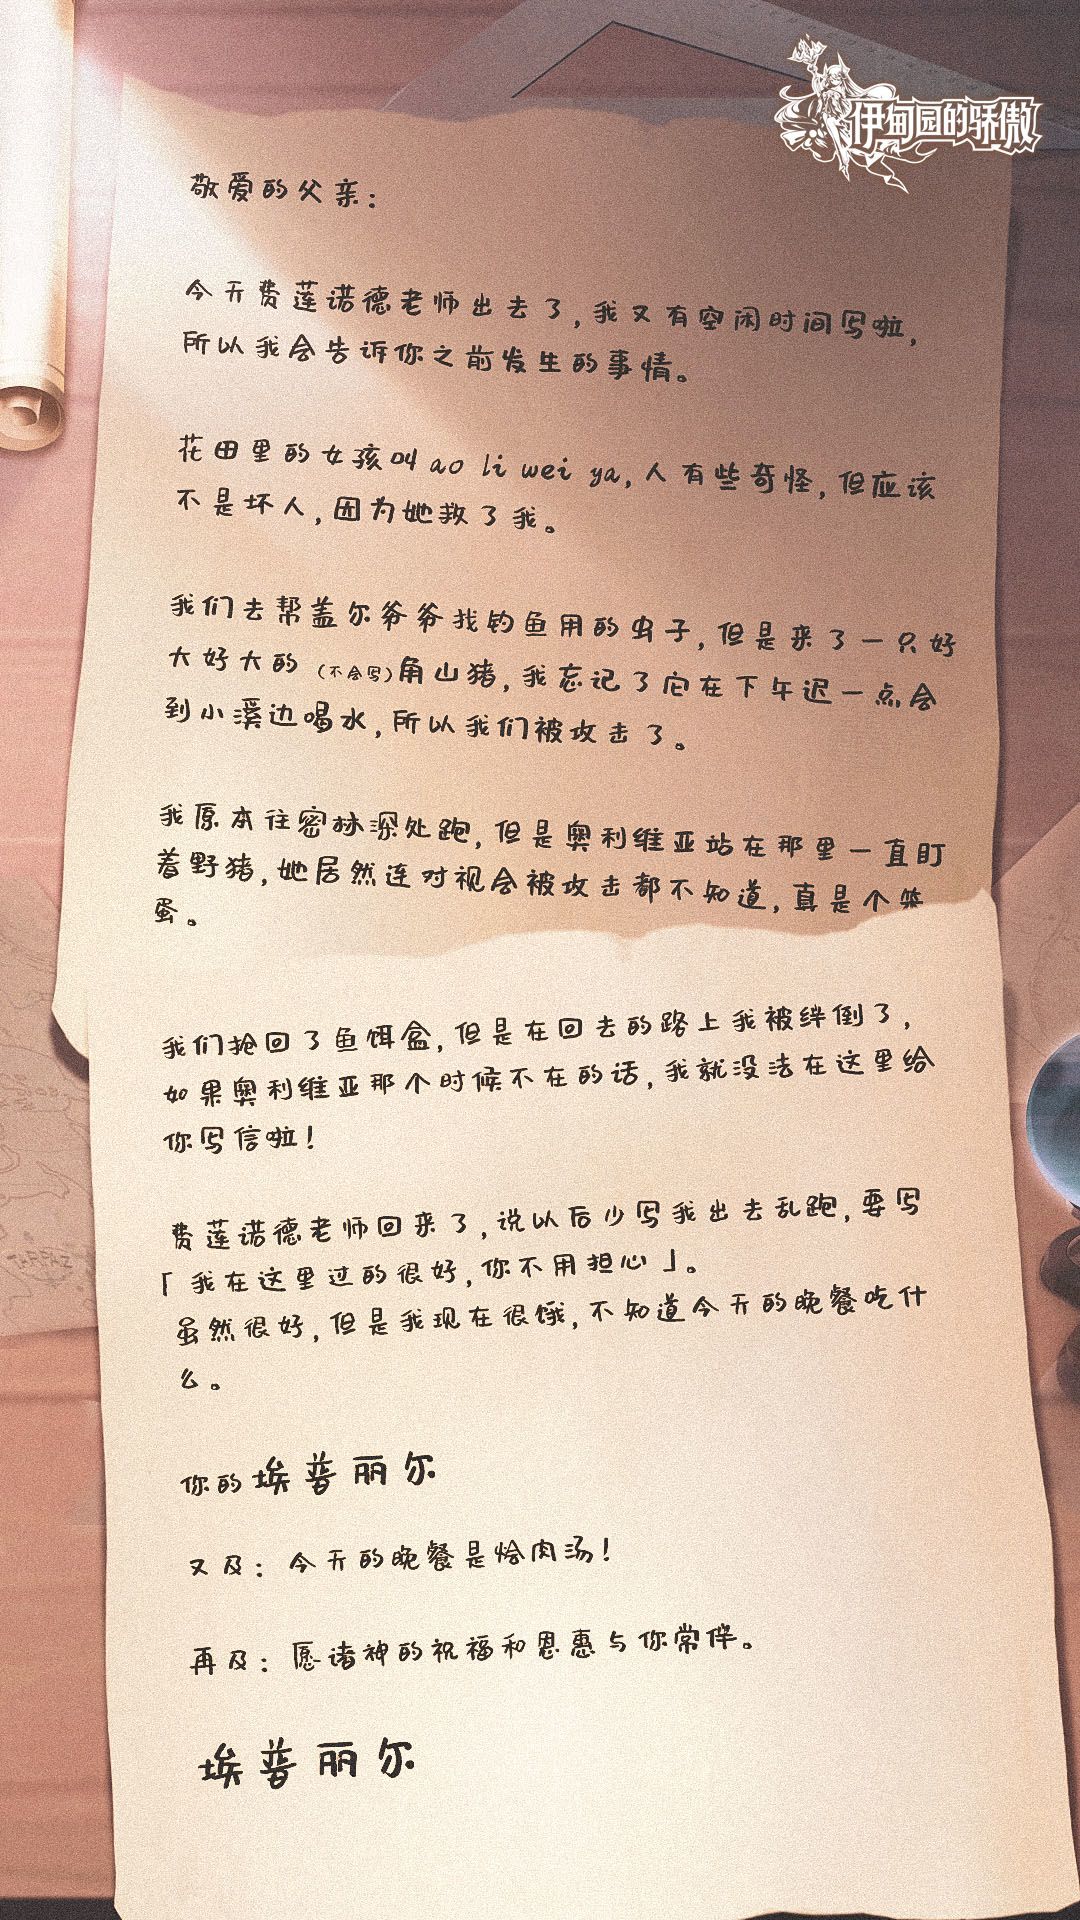 伊甸园的骄傲
敬爱的父亲：
今天费莲诺德老师出去了，我又有空闲时间写啦，
所以我会告诉你之前发生的事情。
花田里的女孩叫ao li wei ya，人有些奇怪，但应该
不是坏人，因为她救了我。
我们去帮盖尔爷爷找钓鱼用的虫子，但是来了一只好
大好大的（不会写）角山猪，我忘记了它在下午迟一点会
到小溪边喝水，所以我们被攻击了。
我原本往密林深处跑，但是奥利维亚站在那里一直盯
着野猪，她居然连对视会被攻击都不知道，真是个笨
蛋。
我们抢回了鱼饵盒，但是在回去的路上我被绊倒了，
如果奥利维亚那个时候不在的话，我就没法在这里给
你写信啦！
费莲诺德老师回来了，说以后少写我出去乱跑，要写
「我在这里过的很好，你不用担心」。
虽然很好，但是我现在很饿，不知道今天的晚餐吃什
么。
你的埃普丽尔
又及：今天的晚餐是烩肉汤！
再及：愿诸神的祝福和恩惠与你常伴。
埃普丽尔